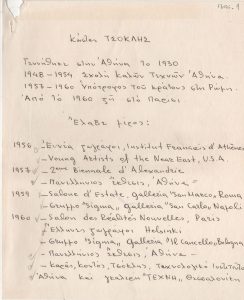 Κώστας ΤΣΟΚΛΗΣ
Γεννήθηκε στην Αθήνα το 1930
1948 - 1954 Σχολή Καλών Τεχνών Αθήνα.
1957 - 1960 Υπότροφος του Κράτους στη Ρώμη.
Από το 1960 ζη στο Παρίσι
Έλαβε μέρος:
1956 Εννέα ζωγράφοι, Institut Francais d'Athènes
- Young Artists of the Near East, U.S.A.
1957 - 2ème Biennale d'Alexandrie
- Πανελλήνιος Έκθεσις, Αθήνα
1959 - Salone d'Estate, Galleria "San Marco, Roma
- Gruppo "Sigma", Galleria "San Carlo, Napoli
1960 - Salon des Réalités Nouvelles, Paris
Έλληνες ζωγράφοι Helsinki
- Gruppo "Sigma", Galleria "Il Cancello, Bologna
- Πανελλήνιος Έκθεσις, Αθήνα
- Κοντός, Τσόκλης, Τεχνολογικό Ινστιτούτο
Αθήνα και γκαλερί "ΤΕΧΝΗ, Θεσσαλονίκη